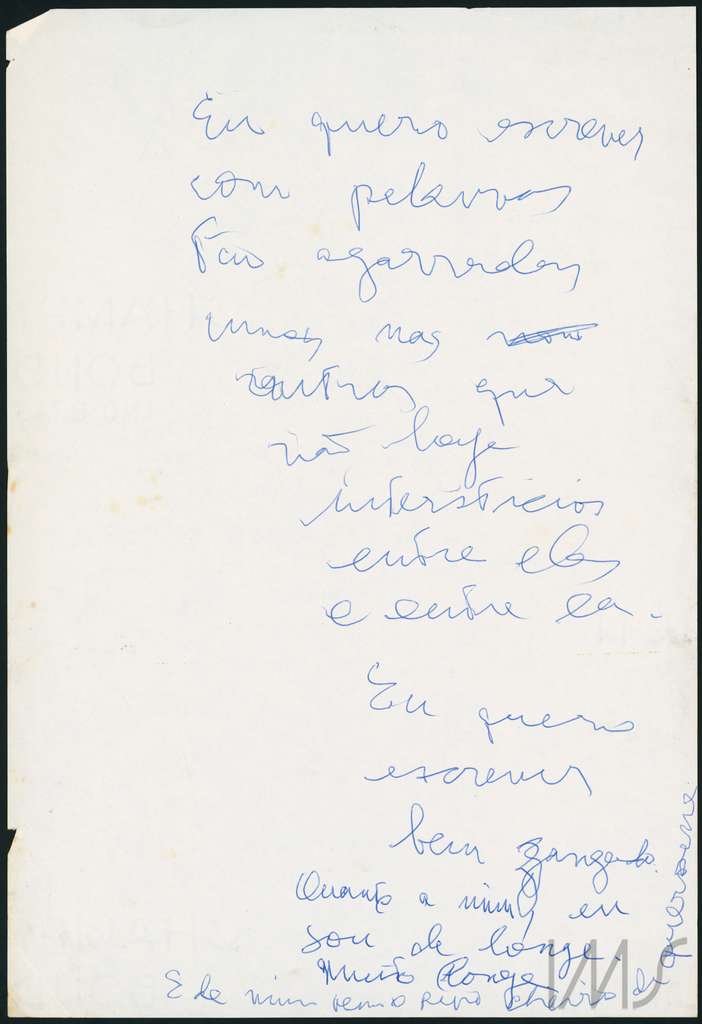 Eu quero escrever
com palavras
tão agarradas
umas nas
outras que
não haja
interstícios
entre elas
e entre eu.
Eu quero
escrever
bem zangado.
Quanto a mim, eu
sou de longe.
Muito longe
E de mim vem o puro cheiro de querosene
IMS